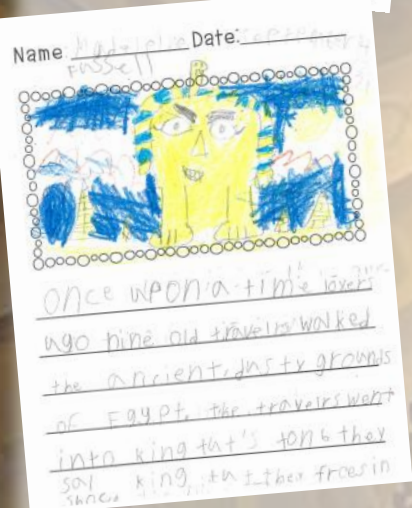 Name Date:
Fussell
once upon a time
ago nine old travelrs walked
the ancient dusty grounds
of Egypt. the travelrs went
into king tut's tonb they
saw king tut then froes in